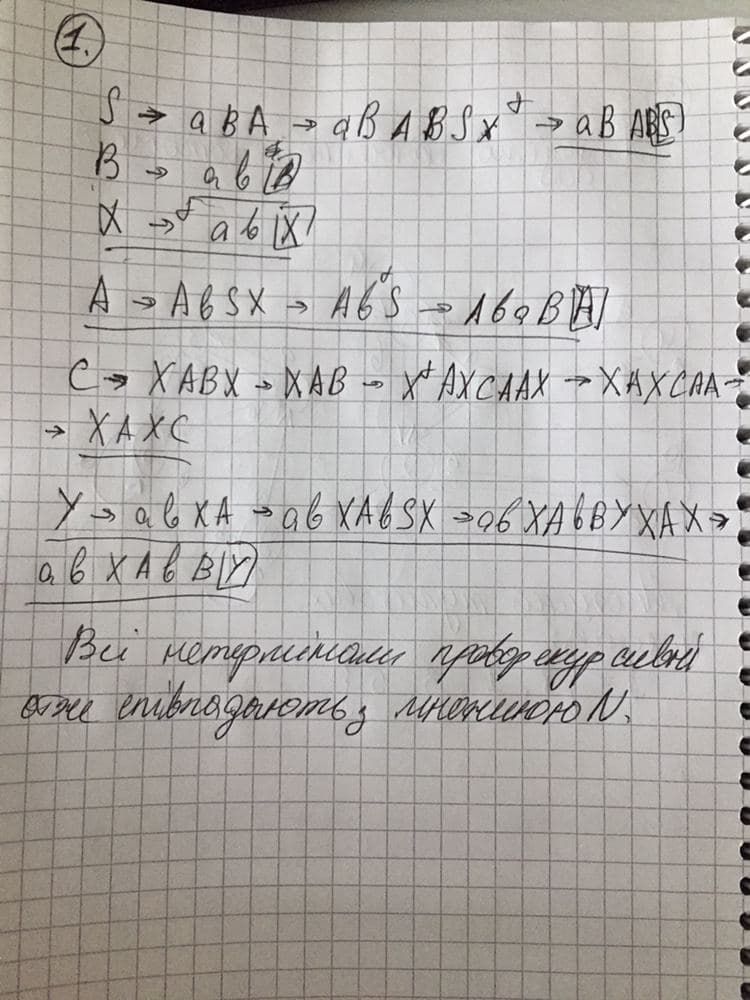 1.
S → aBA → aBABSX⁺ → aBAB[S]
B → ab[B]
X →⁺ ab[X]
A → AbSX → Ab⁺S → AbaB[A]
C → XABX → XAB → X⁺AXCAAX → XAXCAA →
→ XAXC
Y → abXA → abXAbSX → abXAbBYXAX →
abXAbB[Y]
Всі нетермінали праворекурсивні
отже співпадають з множиною N.